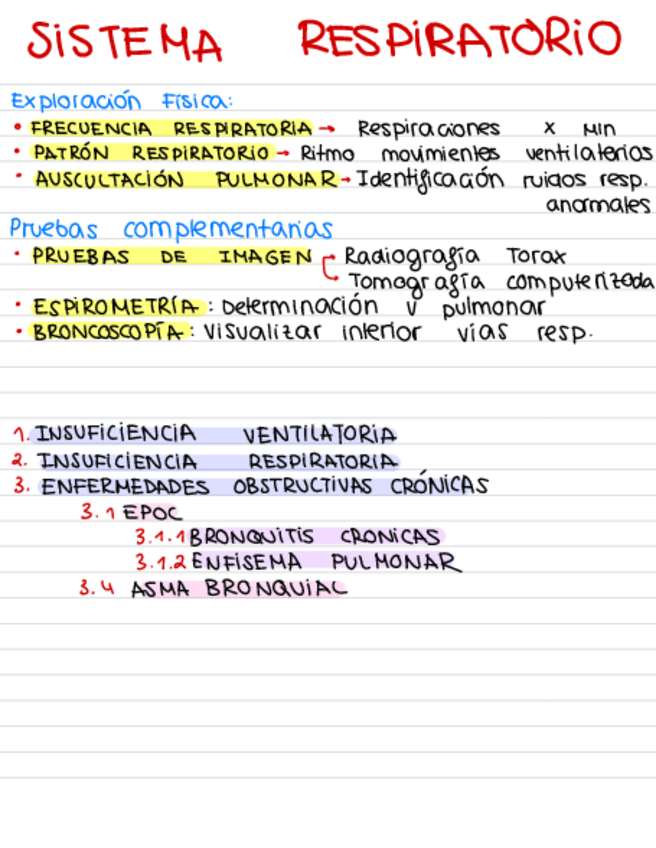 SISTEMA RESPIRATÓRIO
Exploración Física:
• FRECUENCIA RESPIRATORIA → Respiraciones x Min
• PATRÓN RESPIRATORIO → Ritmo movimientes ventilaterios
• AUSCULTACIÓN PULMONAR → Identificación ruidos resp.
anormales
Pruebas complementarias
• PRUEBAS DE IMAGEN Radiografía Torax
Tomografía computerizada
• ESPIROMETRÍA: Determinación v pulmonar
• BRONCOSCOPÍA: Visualizar interior vías resp.
1. INSUFICIENCIA VENTILATORIA
2. INSUFICIENCIA RESPIRATORIA
3. ENFERMEDADES OBSTRUCTIVAS CRÓNICAS
3.1 EPOC
3.1.1 BRONQUITIS CRONICAS
3.1.2 ENFISEMA PULMONAR
3.4 ASMA BRONQUIAL